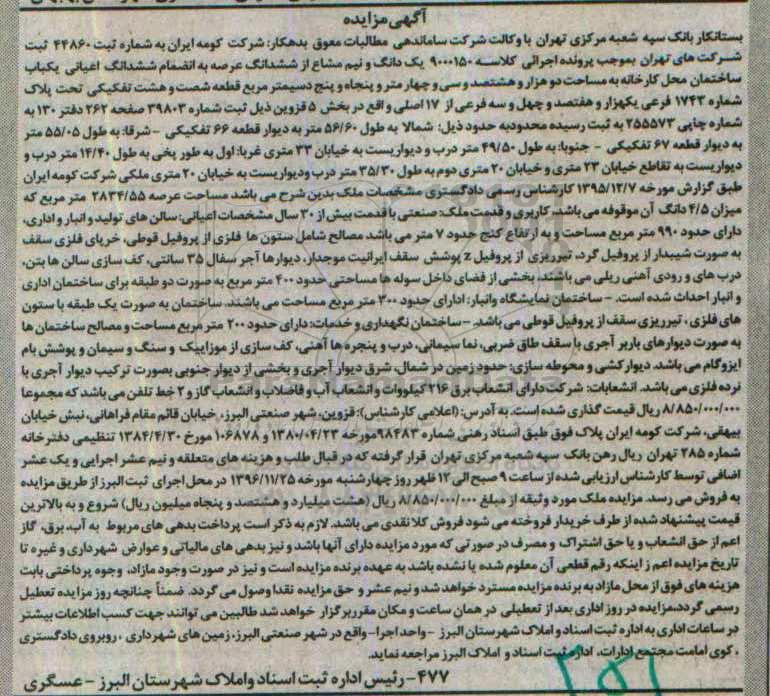 آگهی مزایده
بستانکار بانک سپه شعبه مرکزی تهران با وکالت شرکت ساماندهی مطالبات معوق بدهکار: شرکت کومه ایران به شماره ثبت ۴۴۸۶۰ ثبت
شرکت های تهران بموجب پرونده اجرائی کلاسه ۹۰۰۰۱۵۰ یک دانگ و نیم مشاع از ششدانگ عرصه به انضمام ششدانگ اعیانی یکباب
ساختمان محل کارخانه به مساحت دو هزار و هشتصد و سی و چهار متر و پنجاه و پنج دسیمتر مربع قطعه شصت و هشت تفکیکی تحت پلاک
شماره ۱۷۴۳ فرعی یکهزار و هفتصد و چهل و سه فرعی از ۱۷ اصلی واقع در بخش ۵ قزوین ذیل ثبت شماره ۳۹۸۰۳ صفحه ۲۶۲ دفتر ۱۳۰ به
شماره چاپی ۲۵۵۵۷۳ به ثبت رسیده محدودبه حدود ذیل: شمالا به طول ۵۶/۶۰ متر به دیوار قطعه ۶۶ تفکیکی - شرقا: به طول ۵۵/۰۵ متر
به دیوار قطعه ۶۷ تفکیکی - جنوبا: به طول ۴۹/۵۰ متر درب و دیواریست به خیابان ۳۳ متری غربا: اول به طور پخی به طول ۱۴/۴۰ متر درب و
دیواریست به تقاطع خیابان ۲۳ متری و خیابان ۲۰ متری دوم به طول ۳۵/۳۰ متر درب ودیواریست به خیابان ۲۰ متری ملکی شرکت کومه ایران
طبق گزارش مورخه ۱۳۹۵/۱۲/۷ کارشناس رسمی دادگستری مشخصات ملک بدین شرح می باشد مساحت عرصه ۲۸۳۴/۵۵ متر مربع که
میزان ۴/۵ دانگ آن موقوفه می باشد. کاربری و قدمت ملک: صنعتی با قدمت بیش از ۳۰ سال مشخصات اعیانی: سالن های تولید و انبار و اداری،
دارای حدود ۹۹۰ متر مربع مساحت و به ارتفاع کنج حدود ۷ متر می باشد مصالح شامل ستون ها فلزی از پروفیل قوطی، خرپای فلزی سقف
به صورت شیبدار از پروفیل گرد، تیرریزی از پروفیل z پوشش سقف ایرانیت موجدار، دیوارها آجر سفال ۳۵ سانتی، کف سازی سالن ها بتن،
درب های و رودی آهنی ریلی می باشند، بخشی از فضای داخل سوله ها مساحتی حدود ۴۰۰ متر مربع به صورت دو طبقه برای ساختمان اداری
و انبار احداث شده است. - ساختمان نمایشگاه وانبار: ادارای حدود ۳۰۰ متر مربع مساحت می باشند. ساختمان به صورت یک طبقه با ستون
های فلزی، تیرریزی سقف از پروفیل قوطی می باشد. -ساختمان نگهداری و خدمات: دارای حدود ۲۰۰ متر مربع مساحت و مصالح ساختمان ها
به صورت دیوارهای باربر آجری با سقف طاق ضربی، نما سیمانی، درب و پنجره ها آهنی، کف سازی از موزاییک و سنگ و سیمان و پوشش بام
ایزوگام می باشد. دیوارکشی و محوطه سازی: حدود زمین در شمال، شرق دیوار آجری و بخشی از دیوار جنوبی بصورت ترکیب دیوار آجری با
نرده فلزی می باشد. انشعابات: شرکت دارای انشعاب برق ۲۱۶ کیلووات و انشعاب آب و فاضلاب و انشعاب گاز و ۲ خط تلفن می باشد که مجموعا
۸/۸۵۰/۰۰۰/۰۰۰ ریال قیمت گذاری شده است. به آدرس: (اعلامی کارشناس): قزوین، شهر صنعتی البرز، خیابان قائم مقام فراهانی، نبش خیابان
بیهقی، شرکت کومه ایران پلاک فوق طبق اسناد رهنی شماره ۹۸۴۸۳مورخه ۱۳۸۰/۰۴/۲۳ و ۱۰۶۸۷۸ مورخ ۱۳۸۴/۴/۳۰ تنظیمی دفترخانه
شماره ۲۸۵ تهران ریال رهن بانک سپه شعبه مرکزی تهران قرار گرفته که در قبال طلب و هزینه های متعلقه و نیم عشر اجرایی و یک عشر
اضافی توسط کارشناس ارزیابی شده از ساعت ۹ صبح الی ۱۲ ظهر روز چهارشنبه مورخه ۱۳۹۶/۱۱/۲۵ در محل اجرای ثبت البرز از طریق مزایده
به فروش می رسد. مزایده ملک مورد وثیقه از مبلغ ۸/۸۵۰/۰۰۰/۰۰۰ ریال (هشت میلیارد و هشتصد و پنجاه میلیون ریال) شروع و به بالاترین
قیمت پیشنهاد شده از طرف خریدار فروخته می شود فروش کلا نقدی می باشد. لازم به ذکر است پرداخت بدهی های مربوط به آب، برق، گاز
اعم از حق انشعاب و یا حق اشتراک و مصرف در صورتی که مورد مزایده دارای آنها باشد و نیز بدهی های مالیاتی و عوارض شهرداری و غیره تا
تاریخ مزایده اعم ز اینکه رقم قطعی آن معلوم شده یا نشده باشد به عهده برنده مزایده است و نیز در صورت وجود مازاد، وجوه پرداختی بابت
هزینه های فوق از محل مازاد به برنده مزایده مسترد خواهد شد و نیم عشر و حق مزایده نقدا وصول می گردد. ضمناً چنانچه روز مزایده تعطیل
رسمی گردد،مزایده در روز اداری بعد از تعطیلی در همان ساعت و مکان مقرر برگزار خواهد شد طالبین می توانند جهت کسب اطلاعات بیشتر
در ساعات اداری به اداره ثبت اسناد و املاک شهرستان البرز -واحد اجرا- واقع در شهر صنعتی البرز، زمین های شهرداری ، روبروی دادگستری
، کوی امامت مجتمع ادارات، اداره ثبت اسناد و املاک البرز مراجعه نماید.
۴۷۷- رئیس اداره ثبت اسناد واملاک شهرستان البرز - عسگری